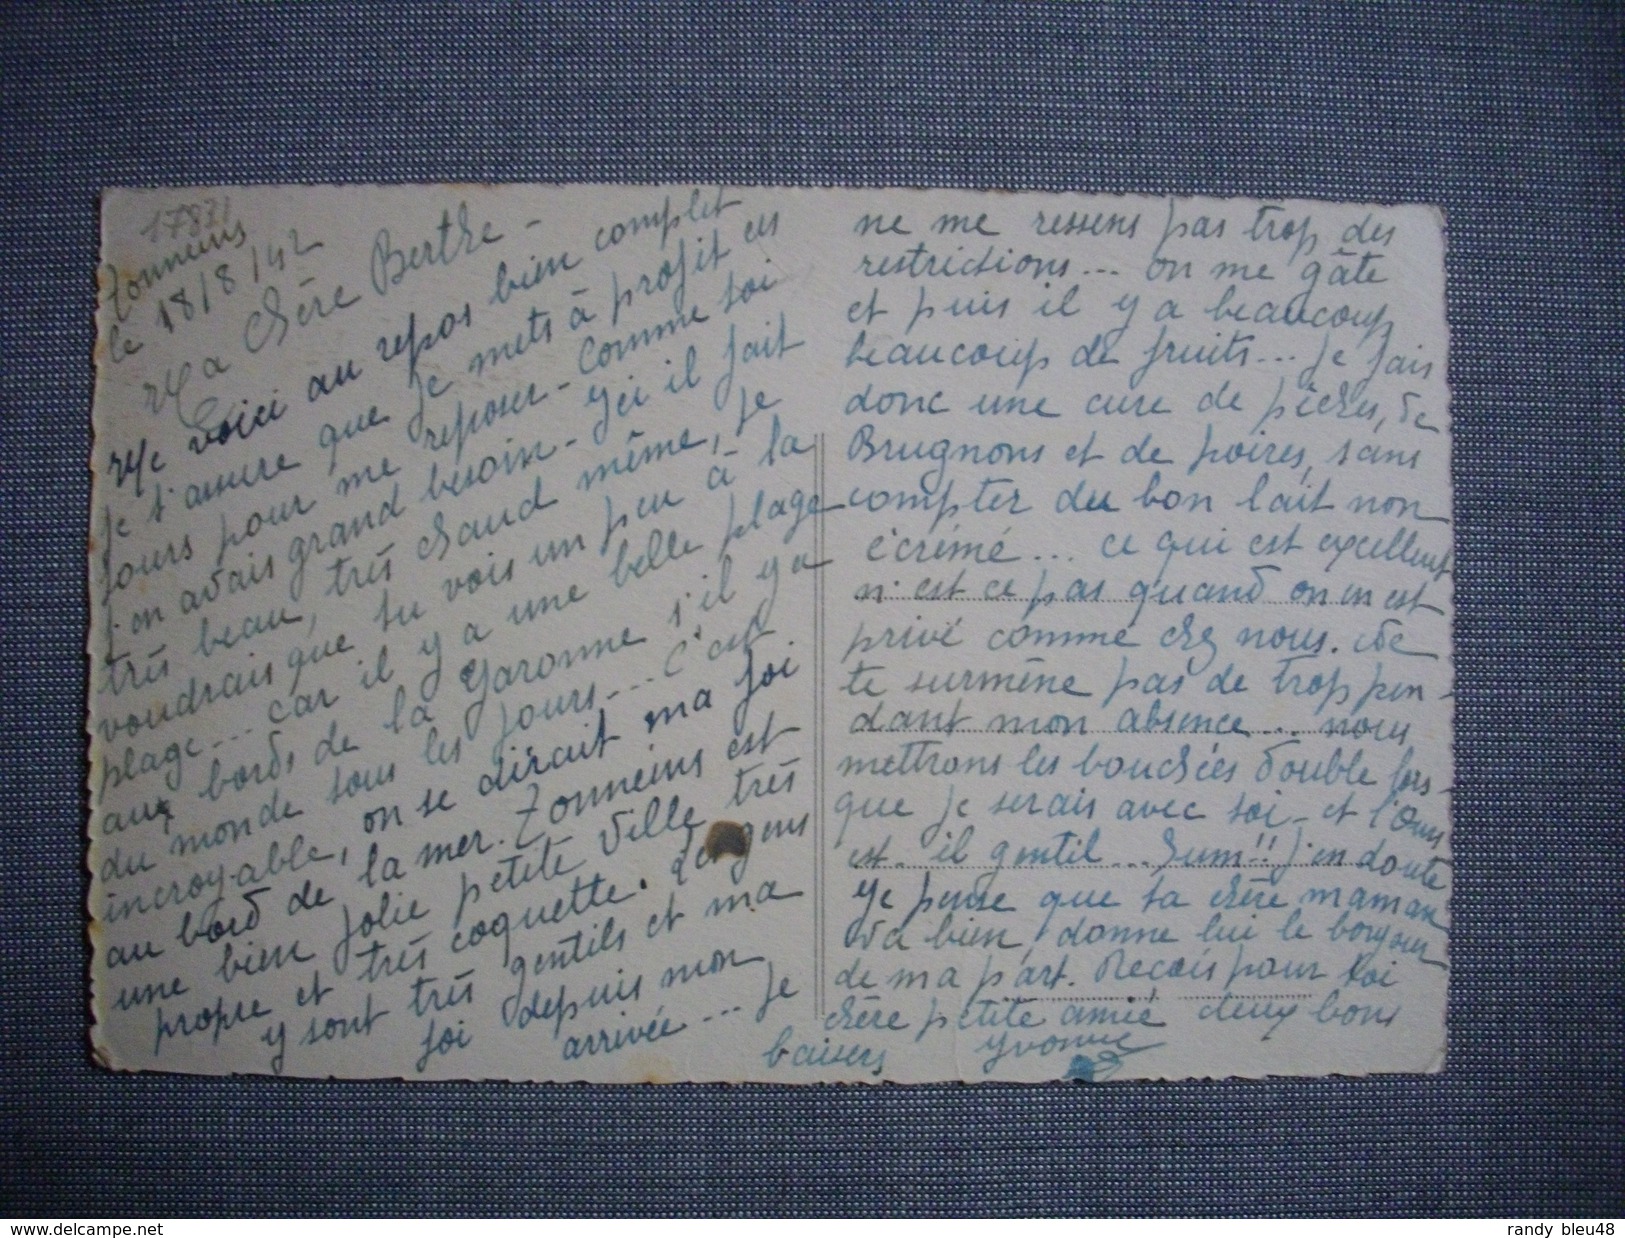 17871
Tonneins
le 18/8/42
Ma chère Berthe -
Me voici au repos bien complet
je t'assure que je mets à profit ces
jours pour me reposer - comme toi
j'en avais grand besoin - Ici il fait
très beau, très chaud même, je
voudrais que tu vois un peu à la
plage... car il y a une belle plage
aux bords de la Garonne s'il y a
du monde tous les jours... c'est
incroyable, on se dirait ma foi
au bord de la mer. Tonneins est
une bien jolie petite ville très
propre et très coquette. Les gens
y sont très gentils et ma
foi depuis mon
arrivée... je
ne me ressens pas trop des
restrictions... on me gâte
et puis il y a beaucoup
beaucoup de fruits... je fais
donc une cure de pêches, de
Brugnons et de poires, sans
compter du bon lait non
écrémé... ce qui est excellent
n'est ce pas quand on en est
privé comme chez nous. Ne
te surmène pas de trop pen-
dant mon absence... nous
mettrons les bouchées double lors-
que je serais avec toi - et l'Ours
est-il gentil... hum!! j'en doute
Je pense que ta chère maman
va bien, donne lui le bonjour
de ma part. Reçois pour toi
chère petite amie deux bons
baisers Yvonne
delcampe.net
randy_bleu48